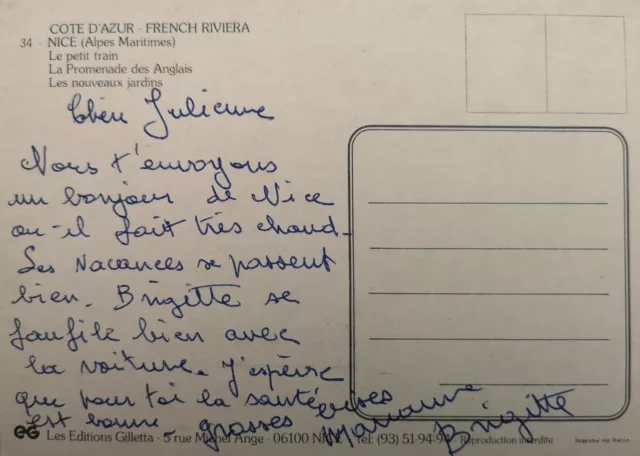 COTE D'AZUR - FRENCH RIVIERA
34 - NICE (Alpes Maritimes)
Le petit train
La Promenade des Anglais
Les nouveaux jardins
Chère Julienne
Nous t'envoyons
un bonjour de Nice
où il fait très chaud.
Les vacances se passent
bien. Brigitte se
faufile bien avec
la voiture. J'espère
que pour toi la santé
est bonne.
grosses bises
Marianne
Brigitte
eG Les Editions Gilletta - 5 rue Michel Ange - 06100 NICE Tél: (93) 51-94-9 Reproduction interdite